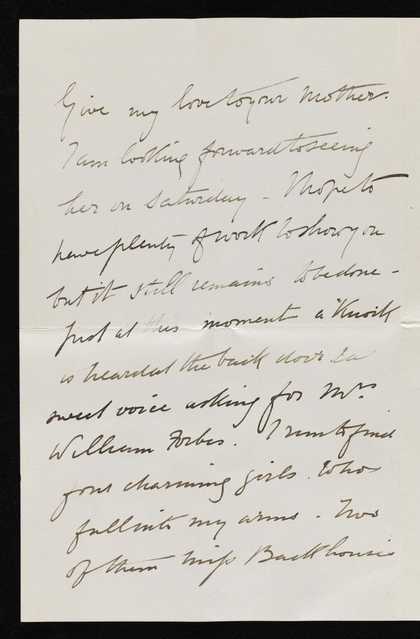 Give my love to your Mother.
I am looking forward to seeing
her on Saturday – I hope to
have plenty of work to show you
but it still remains to be done –
Just at this moment a "Knock
is heard at the back door & a
sweet voice asking for Mrs
William Forbes. I run to find
four charming girls. Who
fall into my arms. Two
of them Miss Backhouses